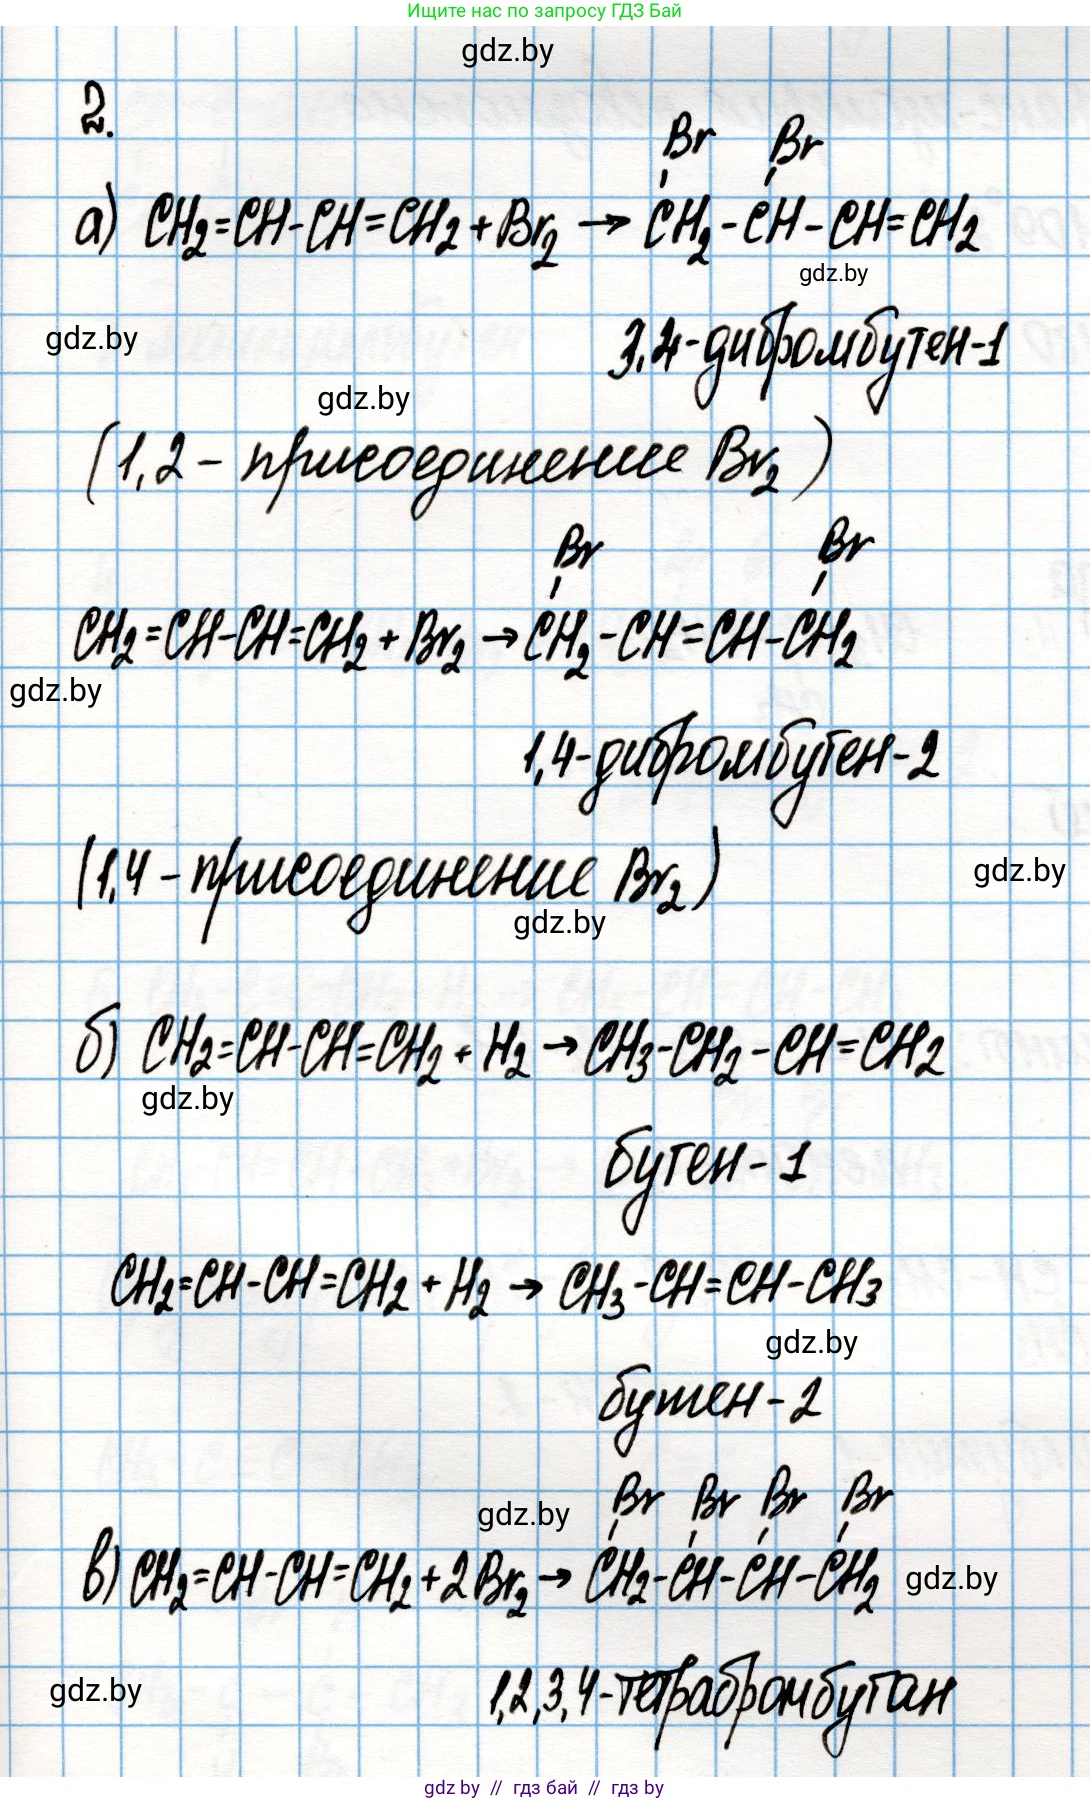 Ищите нас по запросу ГДЗ Бай
gdz.by
2.
Br Br
а) CH2=CH-CH=CH2+Br2 → CH2-CH-CH=CH2
gdz.by
gdz.by
3,4-дибромбутен-1
gdz.by
(1,2-присоединение Br2)
Br Br
CH2=CH-CH=CH2+Br2 → CH2-CH=CH-CH2
gdz.by
1,4-дибромбутен-2
(1,4-присоединение Br2)
gdz.by
gdz.by
б) CH2=CH-CH=CH2+H2 → CH3-CH2-CH=CH2
gdz.by
бутен-1
CH2=CH-CH=CH2+H2 → CH3-CH=CH-CH3
gdz.by
бутен-2
gdz.by
Br Br Br Br
в) CH2=CH-CH=CH2+2Br2 → CH2-CH-CH-CH2
gdz.by
gdz.by
1,2,3,4-тетрабромбутан
gdz.by // гдз бай // гдз by